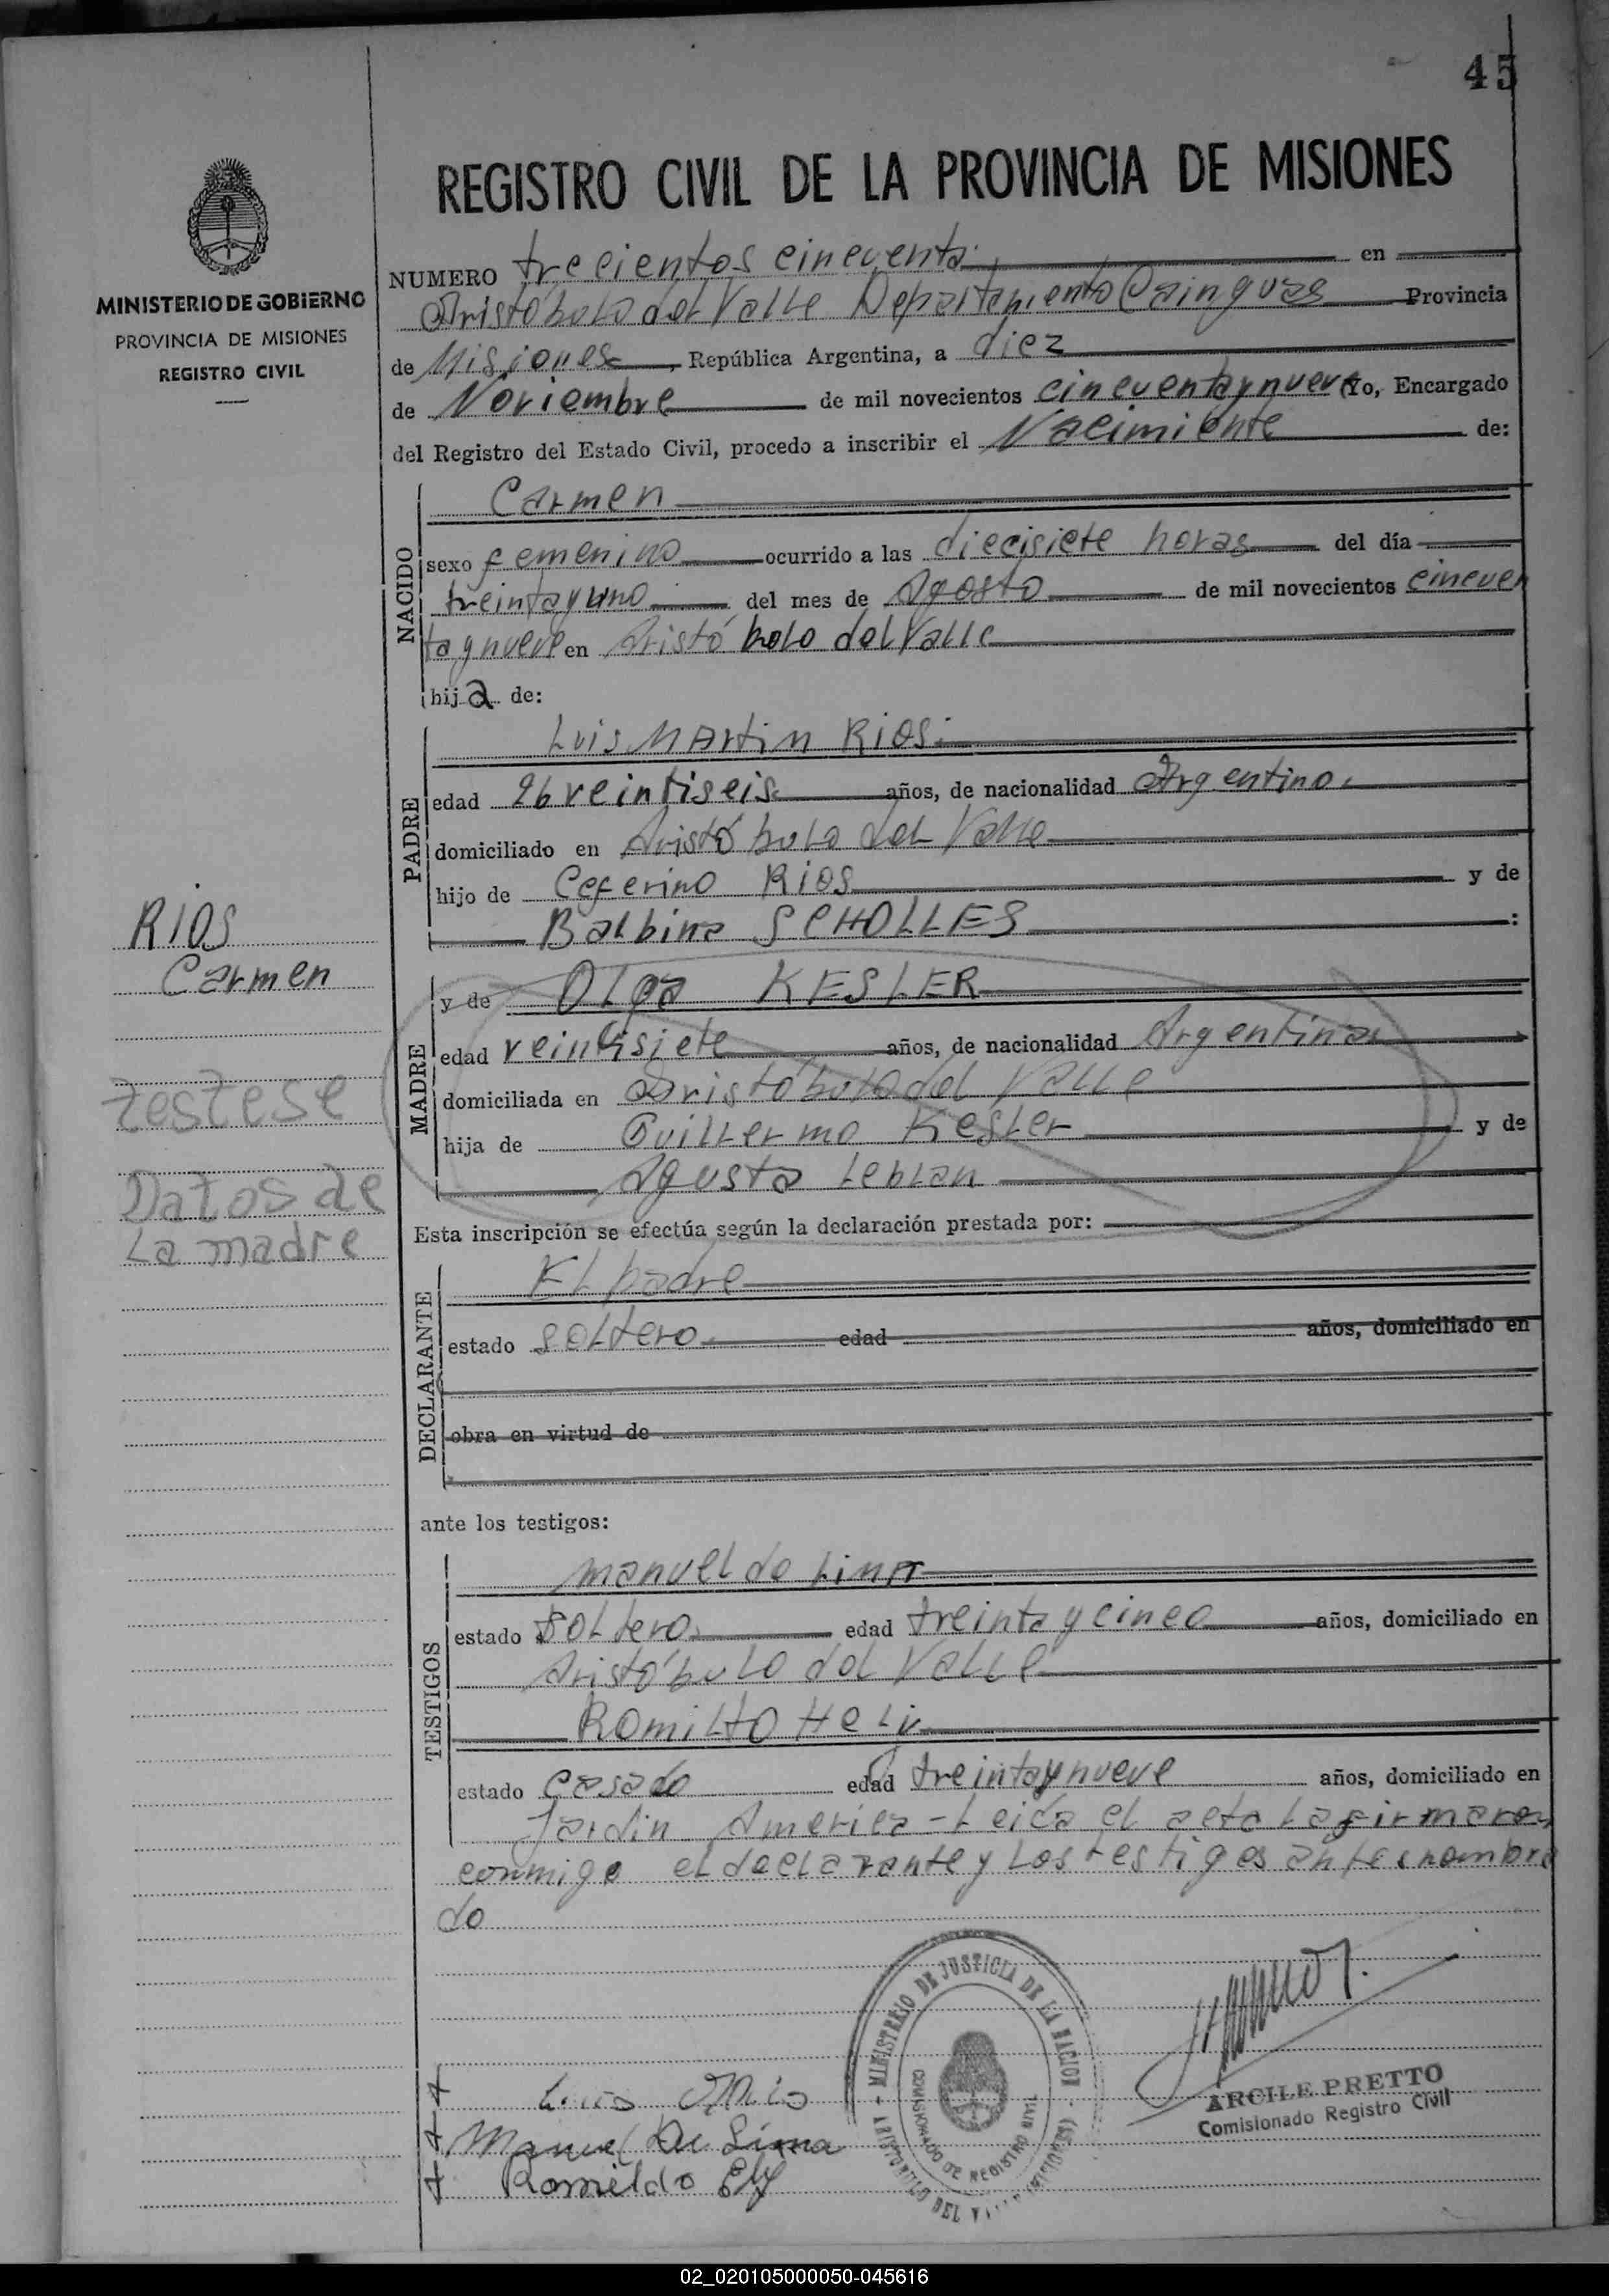 45
REGISTRO CIVIL DE LA PROVINCIA DE MISIONES
MINISTERIO DE GOBIERNO
PROVINCIA DE MISIONES
REGISTRO CIVIL
NUMERO trecientos cincuenta en
Aristóbulo del Valle Departamento Cainguas Provincia
de Misiones, República Argentina, a diez
de Noviembre de mil novecientos cincuentaynueve Yo, Encargado
del Registro del Estado Civil, procedo a inscribir el Nacimiento de:
NACIDO
Carmen
sexo femenino ocurrido a las diecisiete horas del día
treintayuno del mes de Agosto de mil novecientos cincuen
taynueve en Aristóbolo del Valle
hija de:
PADRE
Luis Martin Rios
edad 26 veintiseis años, de nacionalidad Argentino
domiciliado en Aristóbulo del Valle
hijo de Ceferino Rios y de
Balbina SCHOLLES:
RIOS
Carmen
testese
Datos de
La madre
MADRE
y de Olga KESLER
edad veintisiete años, de nacionalidad Argentina
domiciliada en Aristóbulo del Valle
hija de Guillermo Kesler y de
Agusta Leblan
Esta inscripción se efectúa según la declaración prestada por:
DECLARANTE
El padre
estado soltero edad años, domiciliado en
obra en virtud de
ante los testigos:
TESTIGOS
Manuel de Lima
estado Soltero edad treinta y cinco años, domiciliado en
Aristóbulo del Valle
Romildo Hely
estado casado edad treintaynueve años, domiciliado en
Jardin America - Leida el acta la firmaron
conmigo el declarante y los testigos antes nombra
do
Luis Rios
Manuel De Lima
Romildo Ely
MINISTERIO DE JUSTICIA DE LA NACION
COMISIONADO DE REGISTRO CIVIL
ARISTOBULO DEL (MISIONES)
ARCILE PRETTO
Comisionado Registro Civil
02_020105000050-045616